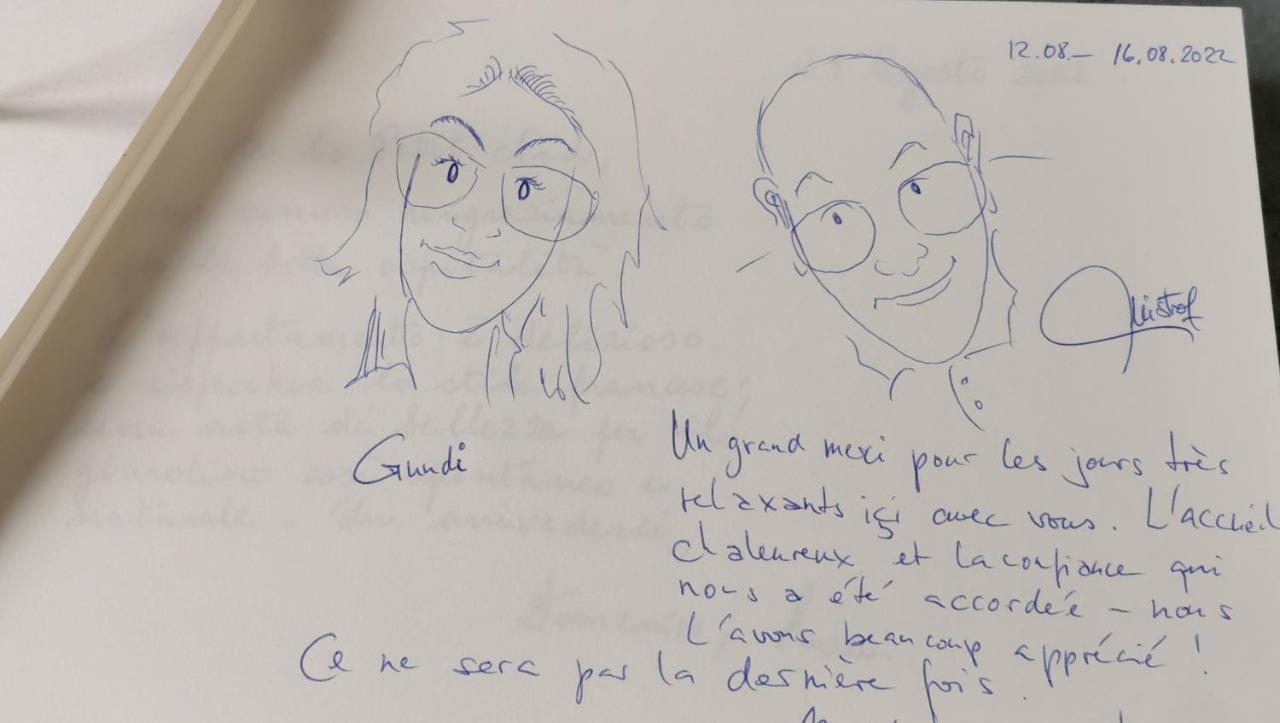 12.08.– 16.08.2022
Gundi
Un grand merci pour les jours très
relaxants içi avec vous. L'accueil
chaleureux et la confiance qui
nous a été accordée – nous
l'avons beaucoup apprécié !
Ce ne sera pas la dernière fois.